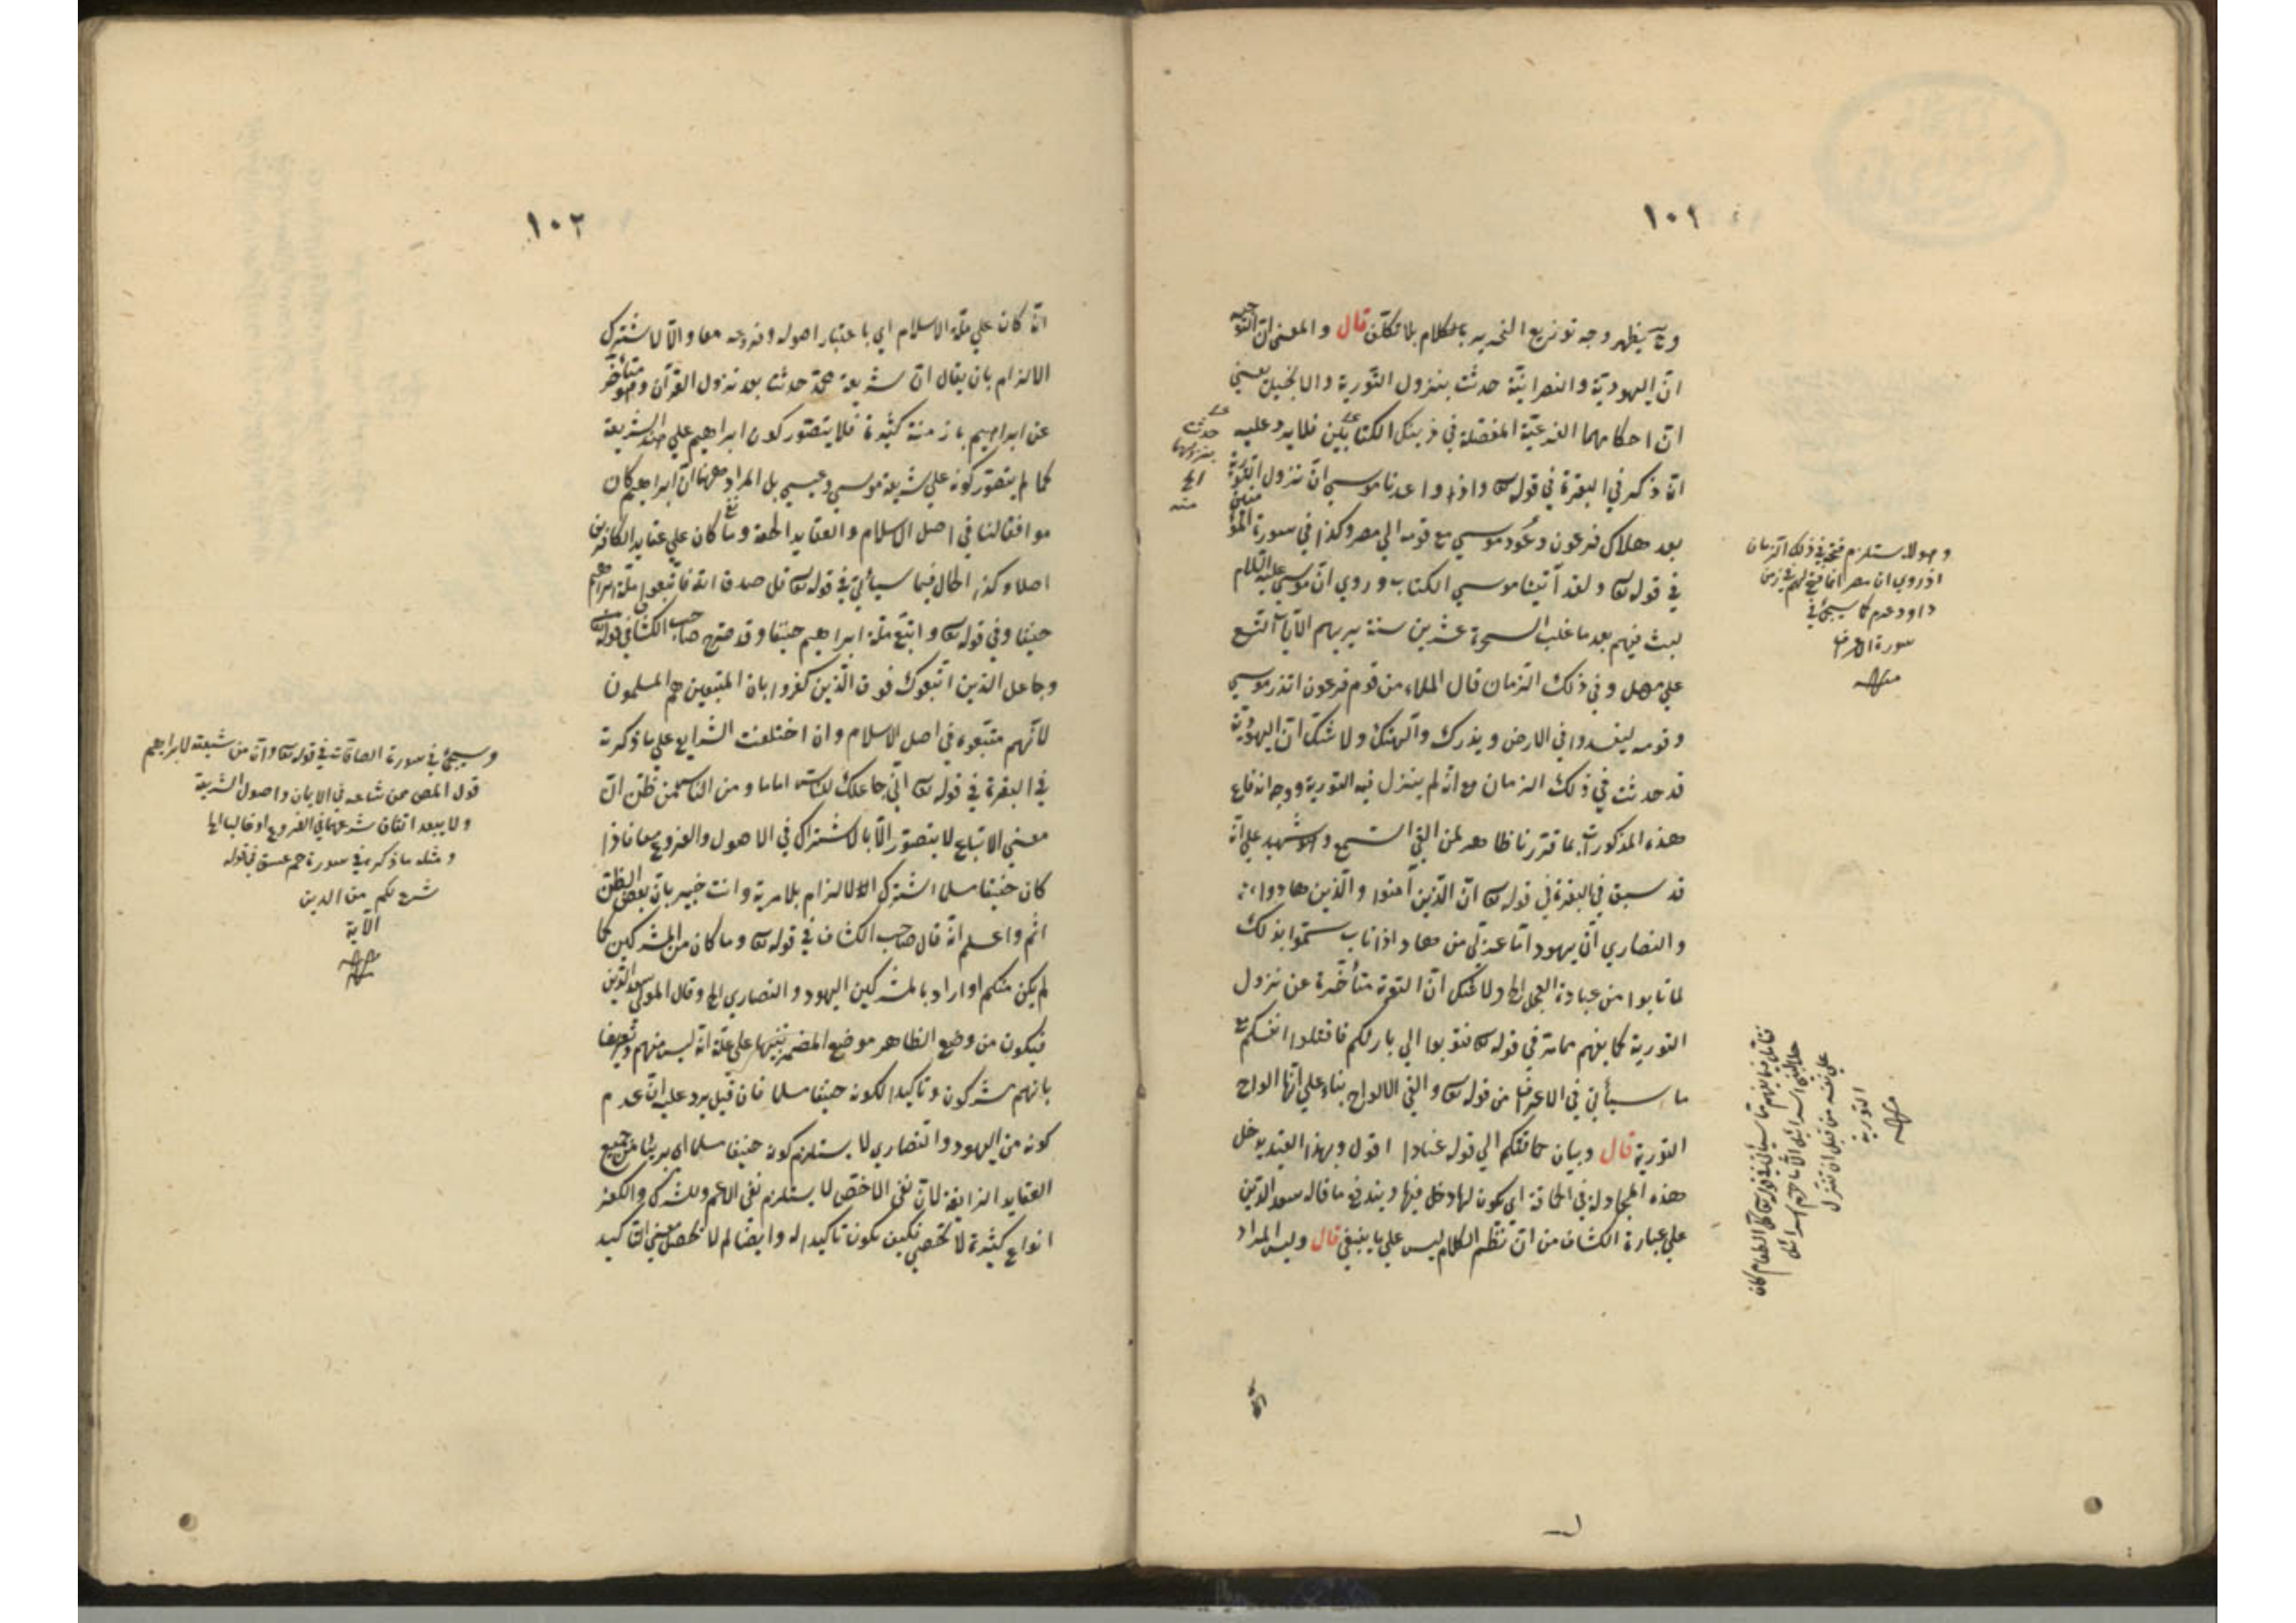 ١٠١
وح يظهر وجه توزيع التحرير بالكلام بلا تكلف قال والمعنى ان
ان اليهودية والنصرانية حدثت بنزول التورية والانجيل يعني
ان احكامهما الفرعية المفصلة في ذينك الكتابين فلا يرد عليه
انه ذكر في البقرة في قوله تعالى واذ واعدنا موسى ان نزول التورية
بعد هلاك فرعون وعود موسى مع قومه الي مصر وكذا في سورة المؤمنين
في قوله تعالى ولقد آتينا موسى الكتاب وروي ان موسى عليه السلام
لبث فيهم بعد ما غلب السحرة عشرين سنة يريهم الآيات التسع
علي مهل وفي ذلك الزمان قال الملاء من قوم فرعون اتذر موسى
وقومه ليفسدوا في الارض ويذرك وآلهتك ولا شك ان اليهودية
قد حدثت في ذلك الزمان مع انه لم ينزل فيه التورية ووجه اندفاع
هذه المذكورات بما قررنا ظاهر لمن القي السمع وهو شهيد علي انه
قد سبق في البقرة في قوله تعالى ان الذين آمنوا والذين هادوا
والنصاري ان يهود اما عربي من هاد اذا تاب سموا بذلك
لما تابوا من عبادة العجل الخ ولا شك ان التوبة متأخرة عن نزول
التورية كما يفهم مما مر في قوله تعالى فتوبوا الي بارئكم فاقتلوا انفسكم مع
ما سيأتي في الاعراف من قوله تعالى والقي الالواح بناء علي انها الواح
التورية قال وبيان حماقتكم الي قوله عنادا اقول وبهذا القيد يدخل
هذه المجادلة في الحماقة اي يكون لها دخل فيها ويندفع ما قاله سعد الدين
علي عبارة الكشاف من ان نظم الكلام ليس علي ما ينبغي قال وليس المراد
حدث
بنزولها
الخ
منه
وهو لا يستلزم فتحه في ذلك الزمان
اذ روي ان مصر انما فتح لهم في زمن
داود عدم كما سيجئ في
سورة الاعراف
منه
التورية
منه
انه
١٠٢
انه كان علي ملة الاسلام اي باعتبار اصوله وفروعه معا والا لاشترك
الالزام بان يقال ان شريعة محمد حدثت بعد نزول القرآن وهو متأخر
عن ابراهيم بازمنة كثيرة فلا يتصور كون ابراهيم علي هذه الشريعة
كما لم يتصور كونه علي شريعة موسى وعيسى بل المراد ههنا ان ابراهيم كان
موافقا لنا في اصل الاسلام والعقايد الحقة وما كان علي عقايد الكافرين
اصلا وكذا الحال فيما سيأتي في قوله تعالى قل صدق الله فاتبعوا ملة ابراهيم
حنيفا وفي قوله تعالى واتبع ملة ابراهيم حنيفا وقد صرح صاحب الكشاف في قوله تعالى
وجاعل الذين اتبعوك فوق الذين كفروا بان المتبعين هم المسلمون
لانهم متبعوه في اصل الاسلام وان اختلفت الشرايع علي ما ذكرته
في البقرة في قوله تعالى اني جاعلك للناس اماما ومن الناس من ظن ان
معني الاتباع لا يتصور الا بالاشتراك في الاصول والفروع معا فاذا
كان حنيفا مسلما اشترك الالزام بلا مرية وانت خبير بان بعض الظن
اثم واعلم انه قال صاحب الكشاف في قوله تعالى وما كان من المشركين كما
لم يكن منكم او اراد بالمشركين اليهود والنصاري الخ وقال المولى سعد الدين
فيكون من وضع الظاهر موضع المضمر تنبيها علي علة انه ليس منهم وتعريضا
بانهم مشركون وتاكيدا لكونه حنيفا مسلما فان قيل يرد عليه ان عدم
كونه من اليهود والنصاري لا يستلزم كونه حنيفا مسلما اي بريئا عن جميع
العقايد الزايغة لان نفي الاخص لا يستلزم نفي الاعم وللشرك والكفر
انواع كثيرة لا تحصي فكيف يكون تاكيدا له وايضا لم لا يحصل معني التاكيد
وسيجئ في سورة الصافات في قوله تعالى وان من شيعته لابراهيم
قول المص ممن شايعه في الايمان واصول الشريعة
ولا يبعد اتفاق شرعهما في الفروع او غالبا الخ
ومثله ما ذكره في سورة حم عسق في قوله
شرع لكم من الدين
الآية
منه